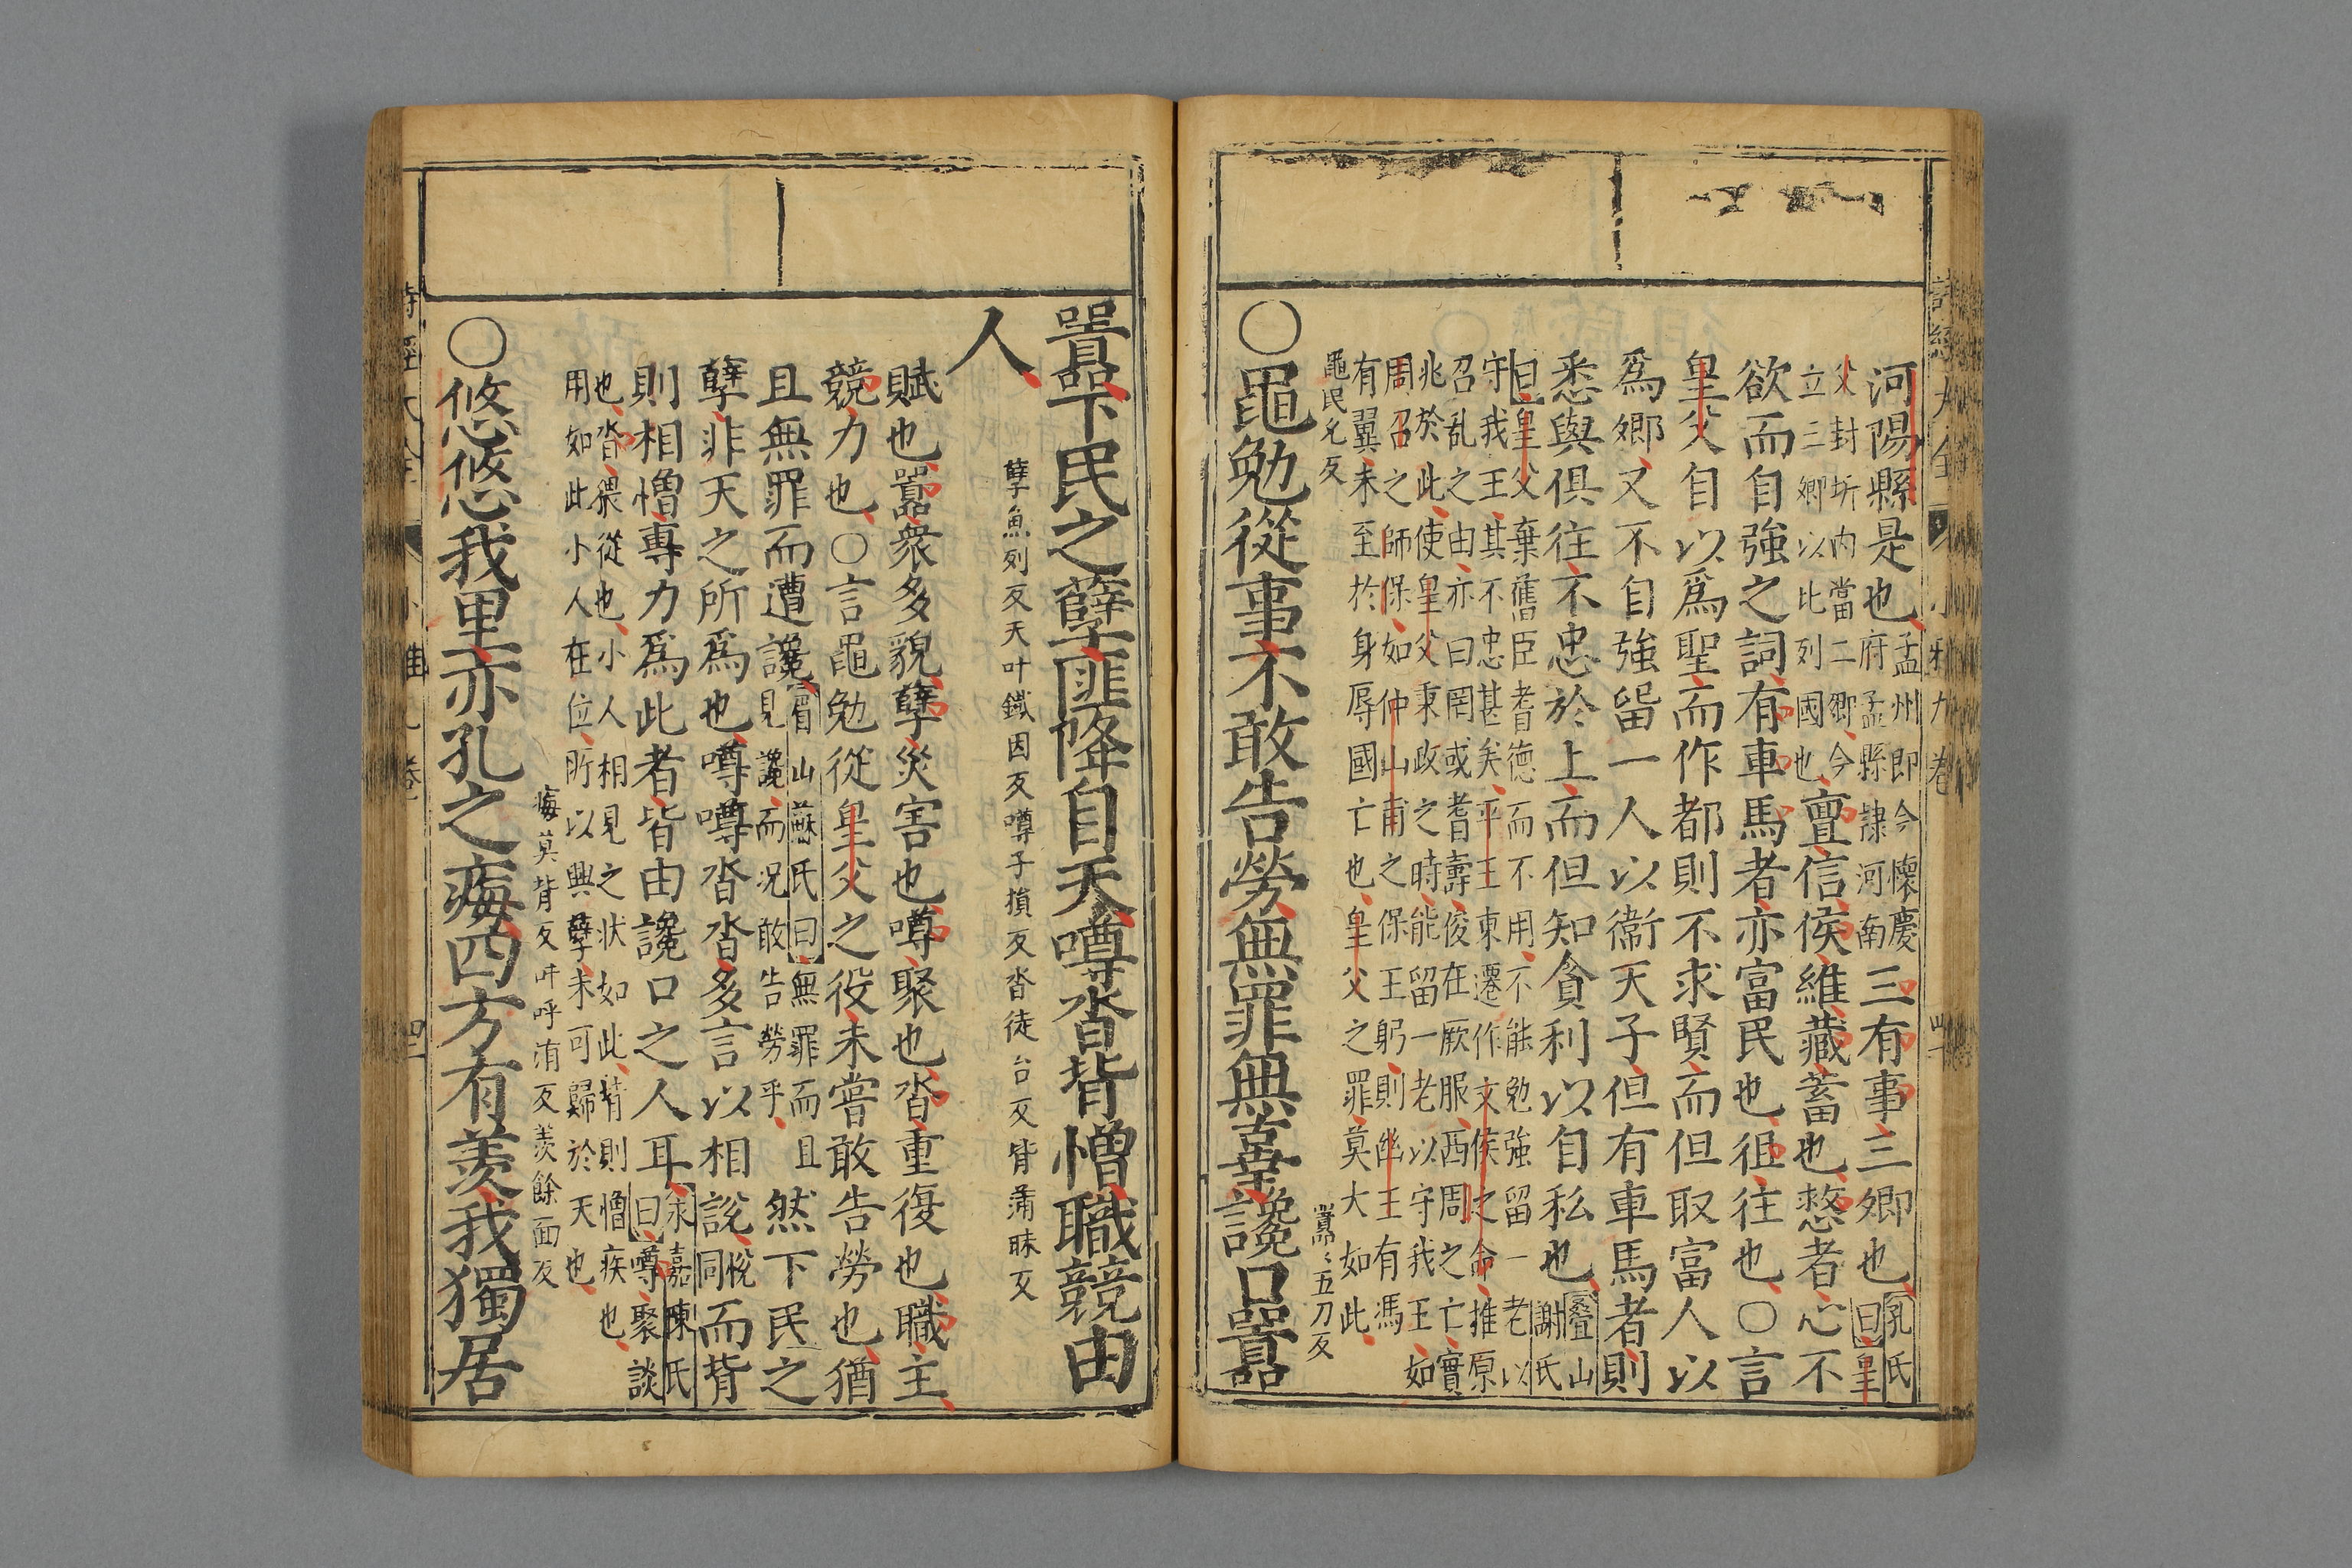 河陽縣是也孟州即今懷慶
府孟縣隷河南三有事三卿也孔氏
曰皇
父封圻内當二卿今
立三卿以比列國也亶信侯維藏蓄也憖者心不
欲而自強之詞有車馬者亦富民也徂往也○言
皇父自以爲聖而作都則不求賢而但取富人以
爲卿又不自強留一人以衞天子但有車馬者則
悉與俱往不忠於上而但知貪利以自私也疊山
謝氏
曰皇父棄舊臣耆德而不用不能勉強留一老以
守我王其不忠甚矣平王東遷作文侯之命推原
召乱之由亦曰罔或耆壽俊在厥服西周之亡實
兆於此使皇父秉政之時能留一老以守我王如
周召之師保如仲山甫之保王躬則幽王有馮
有翼未至於身辱國亡也皇父之罪莫大如此
黽民允反
嚻〻五刀反
○黽勉從事不敢告勞無罪無辜讒口嚻
嚻下民之孽匪降自天噂沓背憎職競由
孽魚列反天叶鐵因反噂子損反沓徒合反背蒲昧反
人
賦也嚻衆多貌孽災害也噂聚也沓重復也職主
競力也○言黽勉從皇父之役未嘗敢告勞也猶
且無罪而遭讒眉山蘇氏曰無罪而且
見讒而況敢告勞乎然下民之
孽非天之所爲也噂噂沓沓多言以相說悅
同而背
則相憎專力爲此者皆由讒口之人耳永嘉陳氏
曰噂聚談
也沓猥從也小人相見之状如此背則憎疾也
用如此小人在位所以興孽未可歸於天也
痗莫背反叶呼洧反羨餘面反
○悠悠我里亦孔之痗四方有羨我獨居